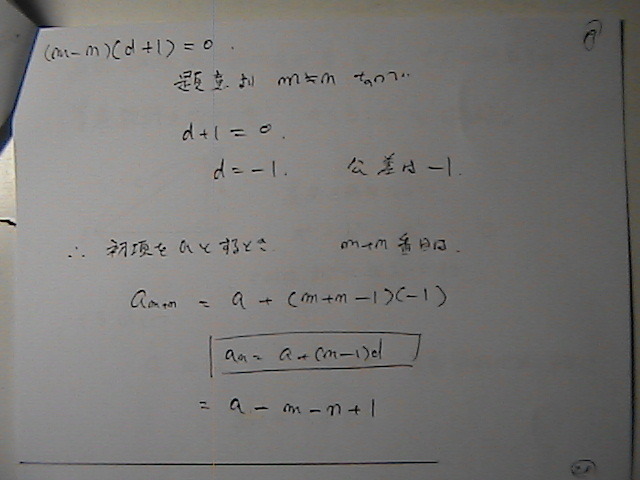 (m-n)(d+1)=0.
題意より m≠n なので
d+1=0.
d=-1. 公差は-1.
∴ 初項をaとするとき m+n番目は.
a_{m+n} = a+(m+n-1)(-1)
a_n = a+(n-1)d
= a-m-n+1